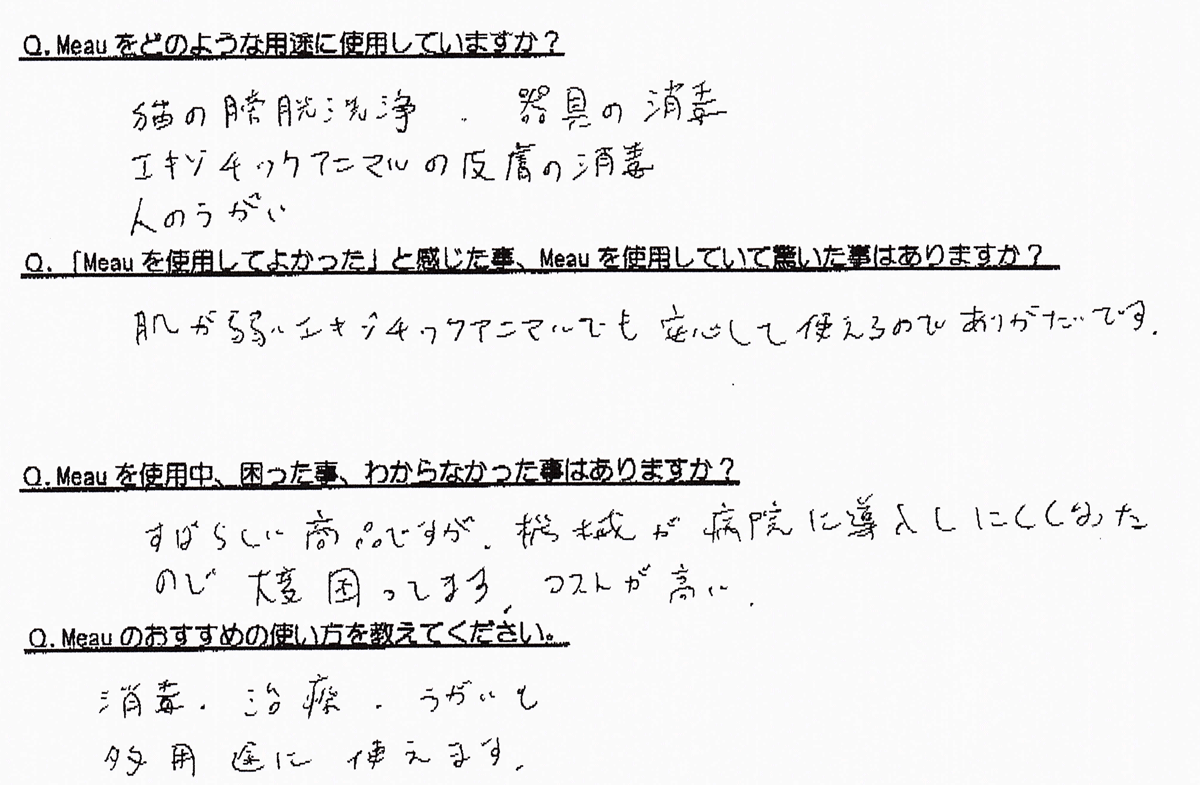 Q. Meau をどのような用途に使用していますか？
猫の膀胱洗浄 . 器具の消毒
エキゾチックアニマルの皮膚の消毒
人のうがい
Q. 「Meau を使用してよかった」と感じた事、Meau を使用していて驚いた事はありますか？
肌が弱いエキゾチックアニマルでも 安心して 使えるので ありがたいです.
Q. Meau を使用中、困った事、わからなかった事はありますか？
すばらしい商品ですが、機械が 病院に導入しにくくなった
ので 大変 困ってます、コストが 高い.
Q. Meau のおすすめの使い方を教えてください。
消毒. 治療. うがいも
多用途に 使えます.